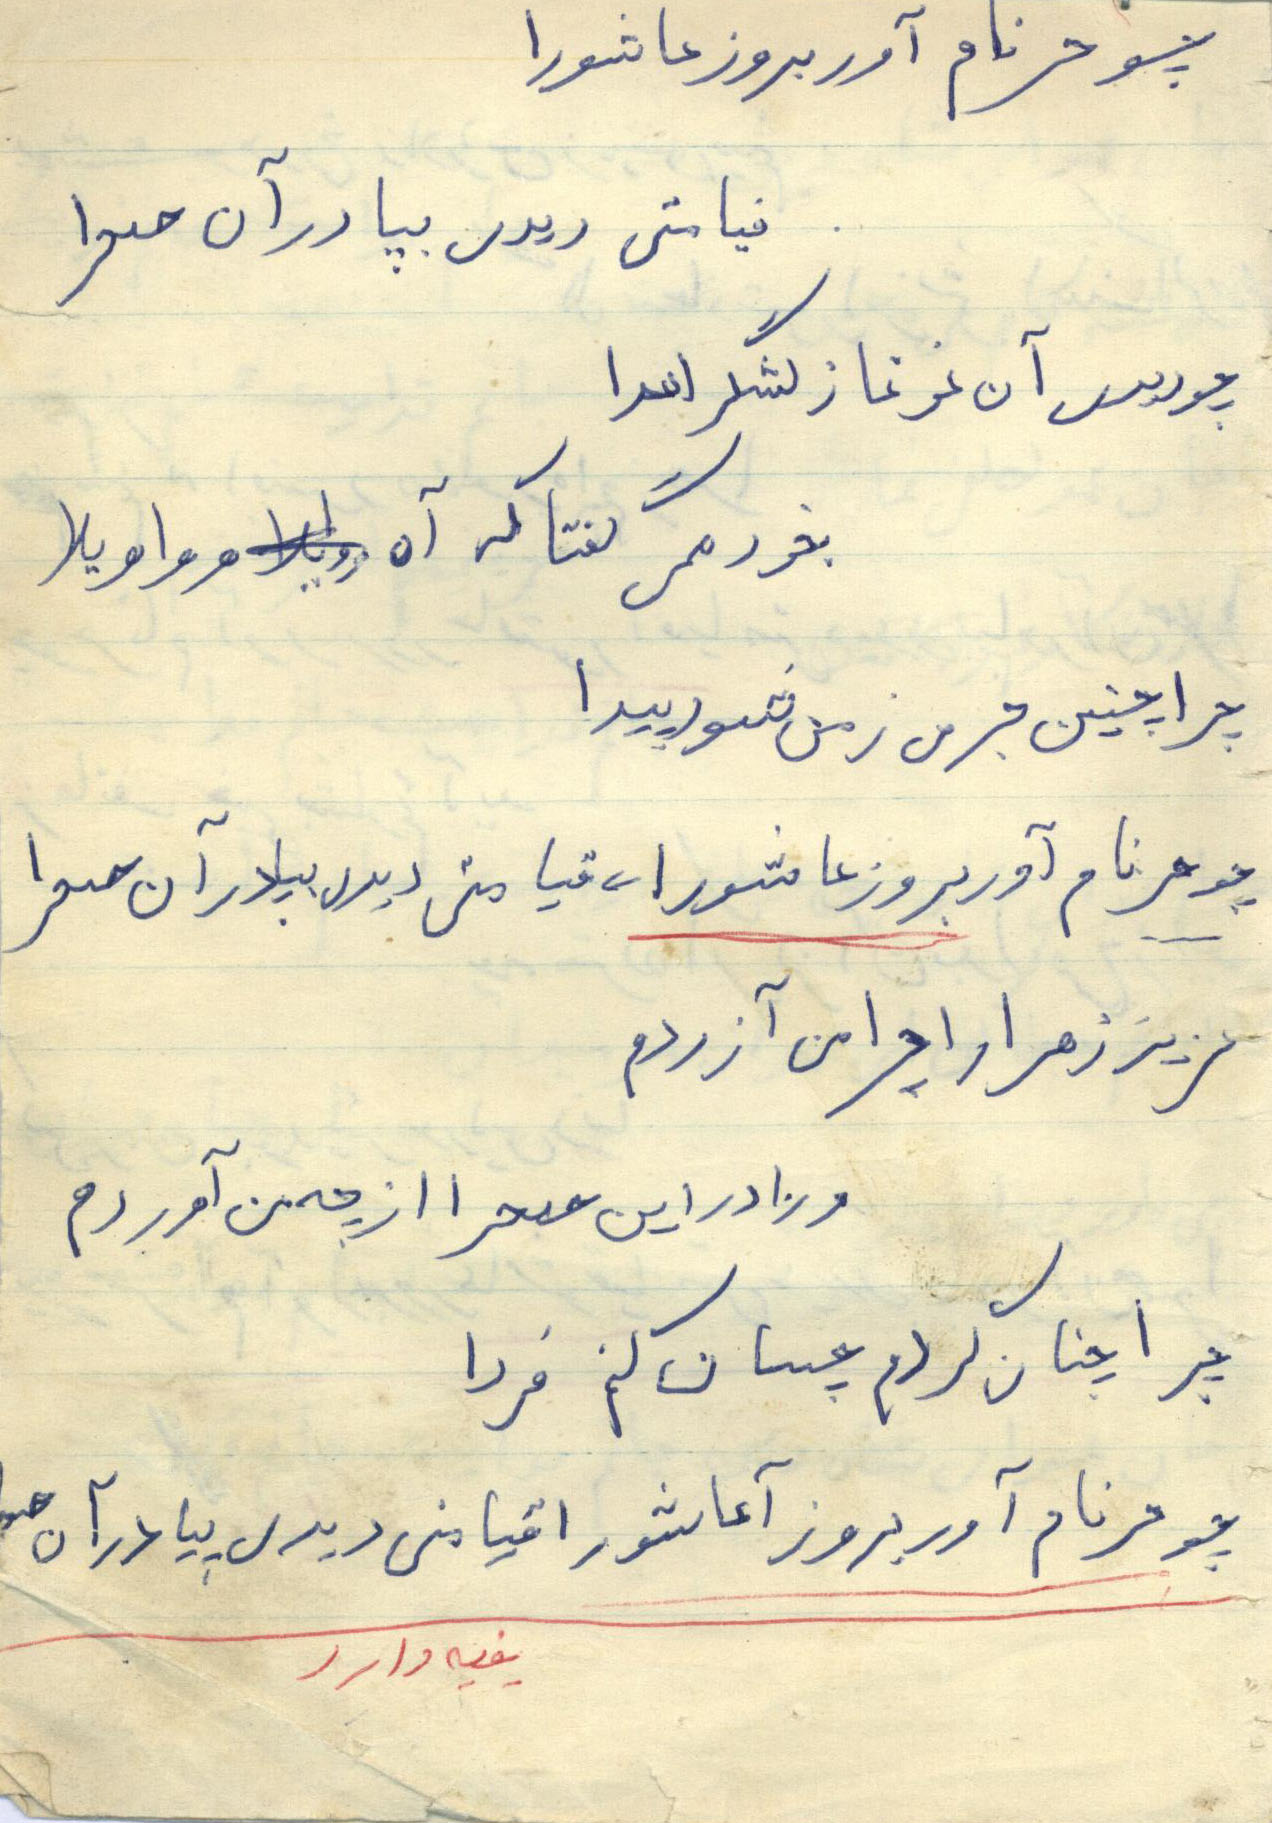 چو حر نام آور بروز عاشورا
قیامتی دیدی بپا در آن صحرا
چو دیدی آن غوغا ز لشگر اعدا
بخود همی گفتا که آه ویلا و واویلا
چرا چنین جرمی ز من شود پیدا
چو حر نام آور بروز عاشورا قیامتی دیدی بپا در آن صحرا
عزیز زهرا را چرا من آزردم
ورا در این صحرا از چه من آوردم
چرا چنان کردم چسان کنم فردا
چو حر نام آور بروز آعاشورا قیامتی دیدی بپا در آن
بقیه دارد